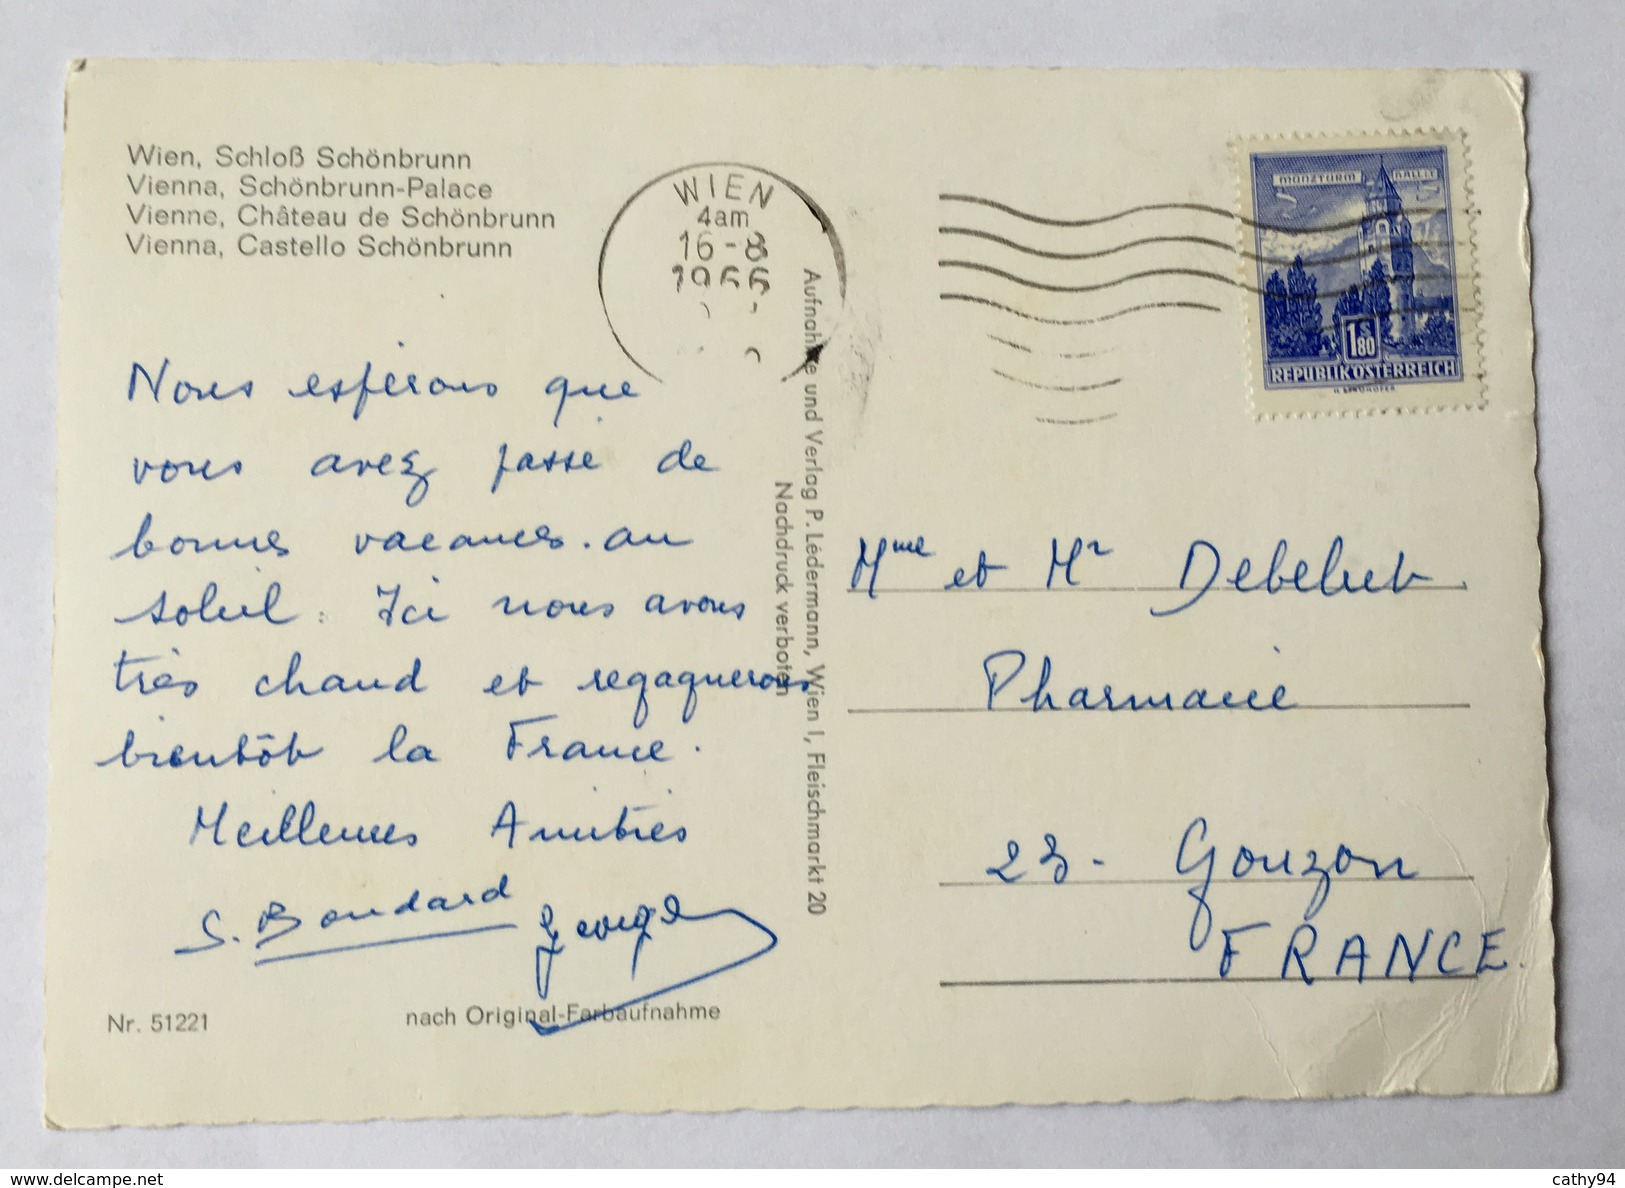 Wien, Schloß Schönbrunn
Vienna, Schönbrunn-Palace
Vienne, Château de Schönbrunn
Vienna, Castello Schönbrunn
WIEN
4am
16-8
1966
MÜNZTURM HALL I.T.
1 S 80
REPUBLIK ÖSTERREICH
Nous espérons que
vous avez passé de
bonnes vacances. au
soleil. Ici nous avons
très chaud et regagnerons
bientôt la France.
Meilleures Amitiés
S. Boudard Georges
Nr. 51221
nach Original-Farbaufnahme
Aufnahme und Verlag P. Lédermann, Wien I, Fleischmarkt 20
Nachdruck verboten
Mme et Mr Debelut
Pharmacie
23 - Gouzon
FRANCE.
delcampe.net
cathy94